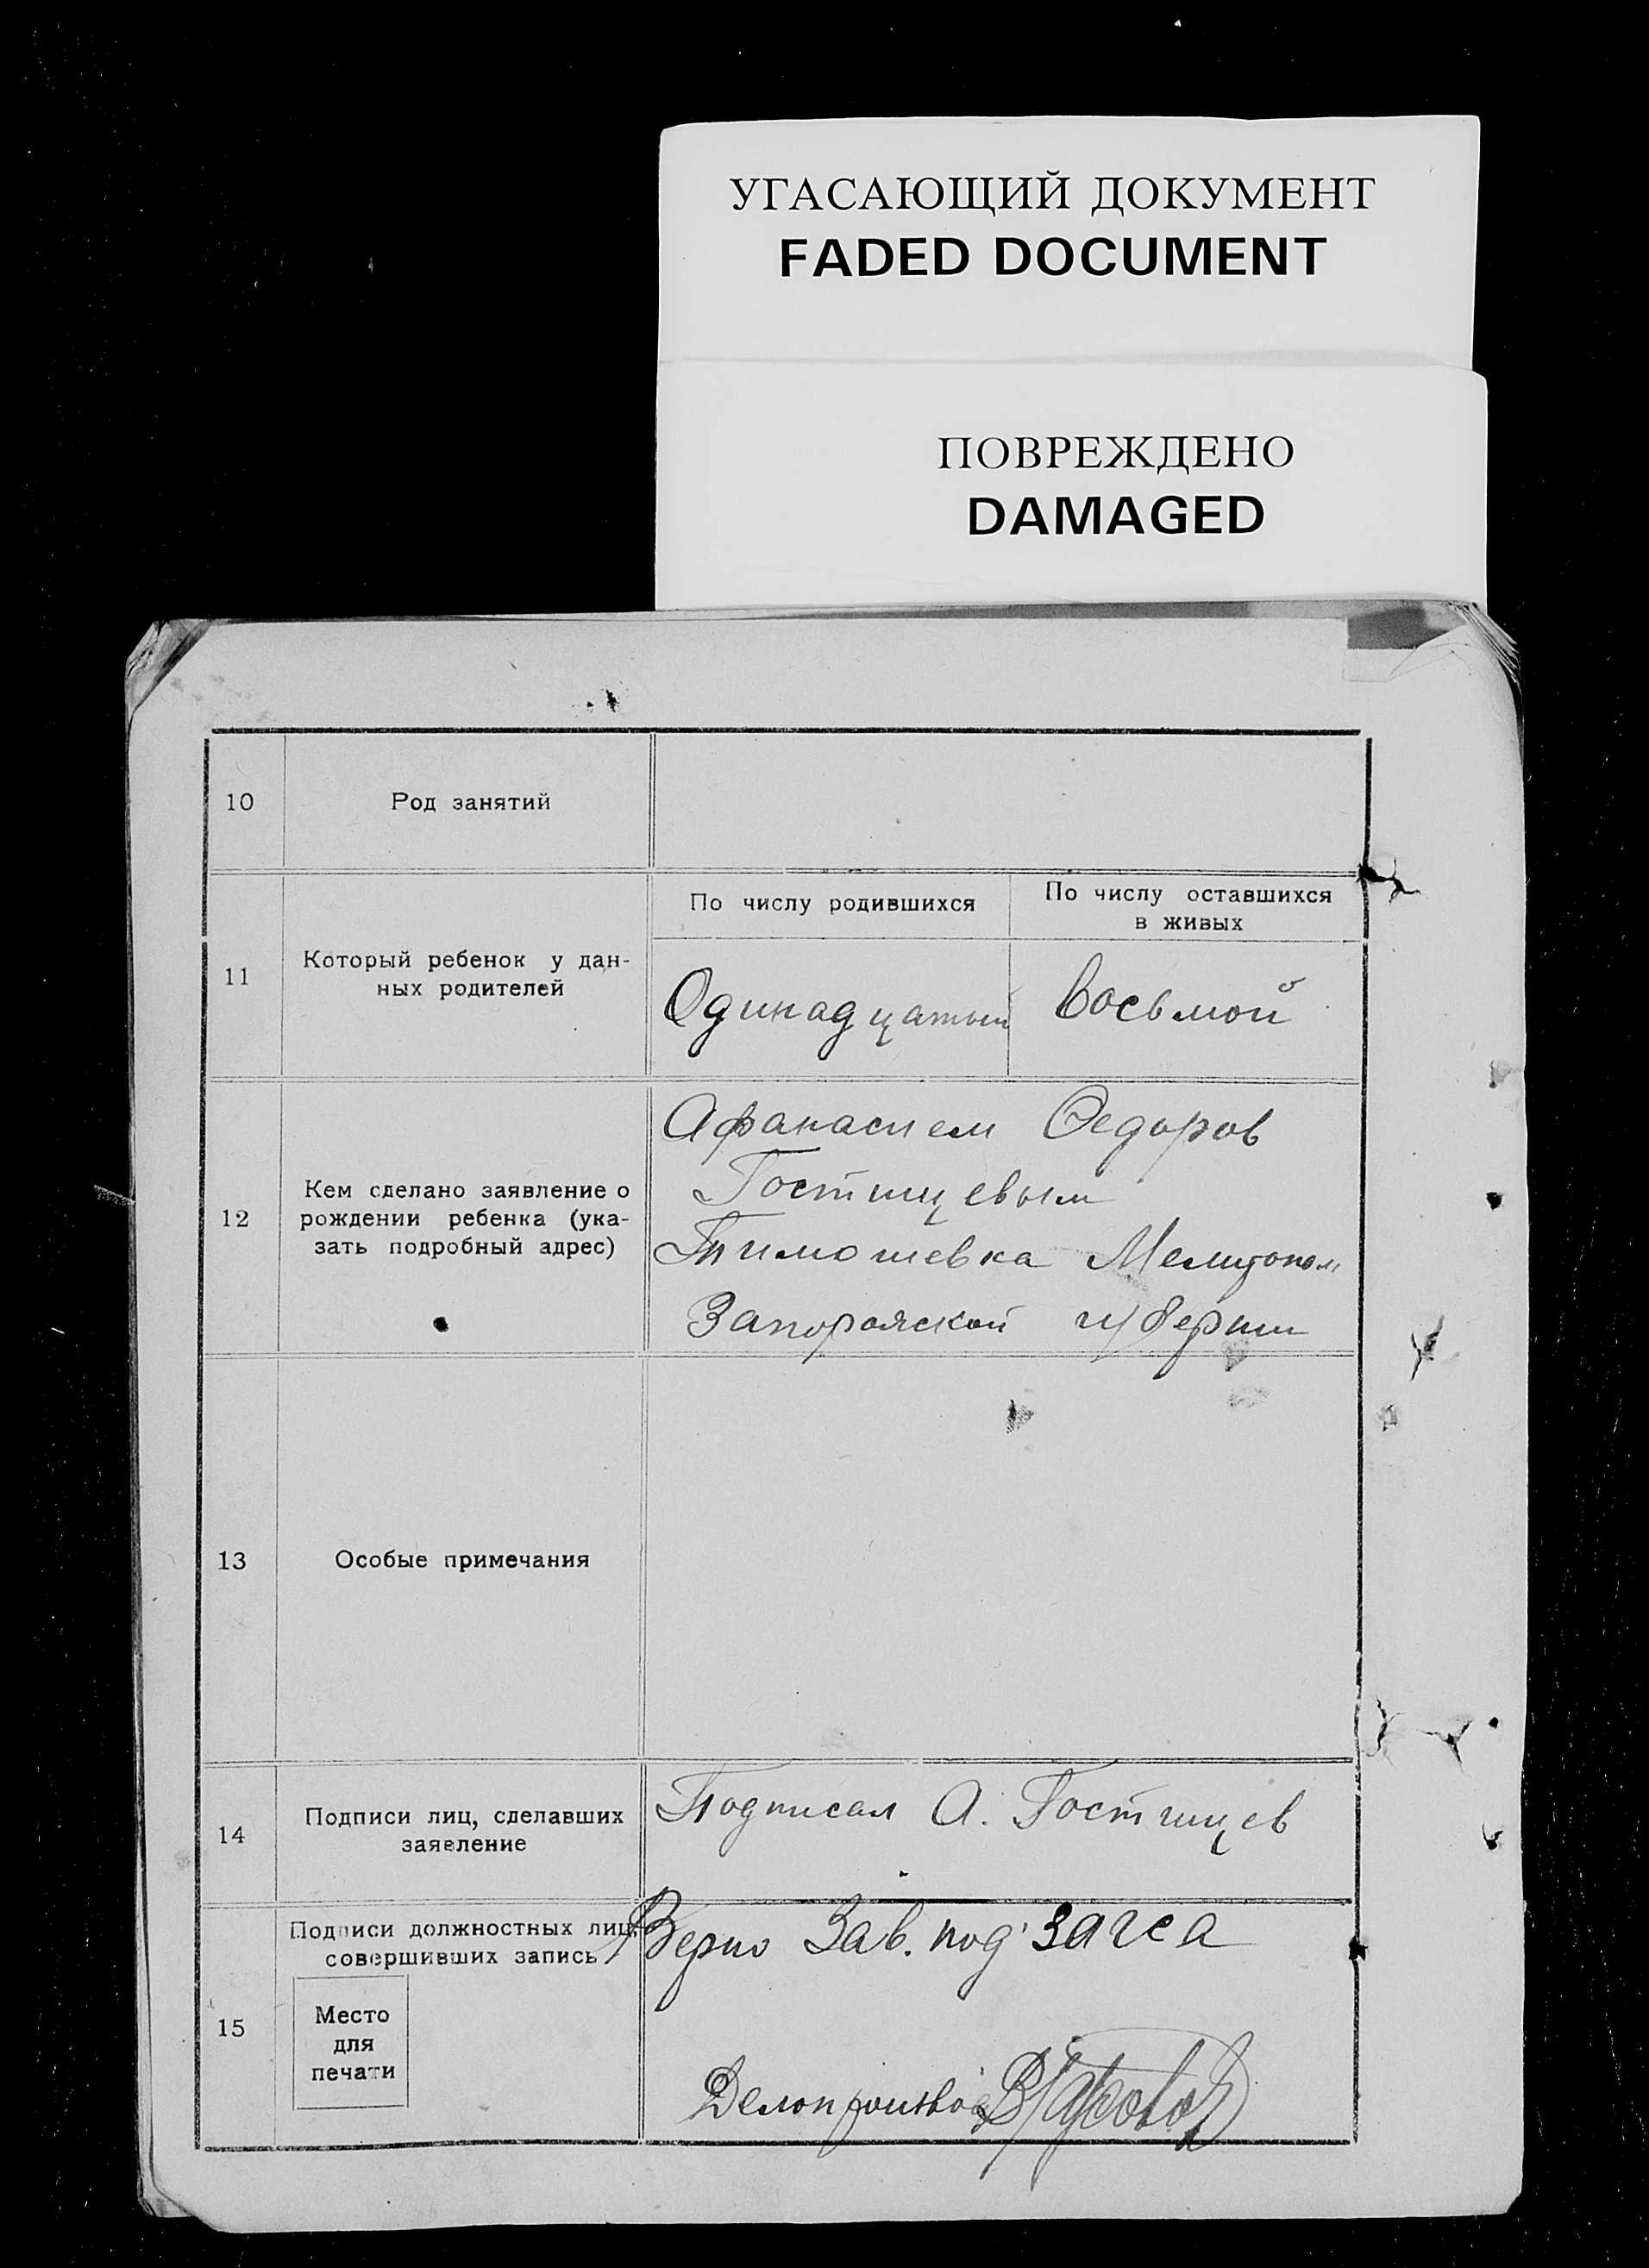 УГАСАЮЩИЙ ДОКУМЕНТ
FADED DOCUMENT
ПОВРЕЖДЕНО
DAMAGED
10
Род занятий
11
Который ребенок у дан-
ных родителей
По числу родившихся
По числу оставшихся
в живых
Одинадцатый
Восьмой
12
Кем сделано заявление о
рождении ребенка (ука-
зать подробный адрес)
Афанасием Федоров
Гостищевым
Тимошевка Мелитопол
Запорожской губернии
13
Особые примечания
14
Подписи лиц, сделавших
заявление
Подписал А. Гостищев
15
Подписи должностных лиц,
совершивших запись
Место
для
печати
Верно Зав. под' загса
Делопроизвод